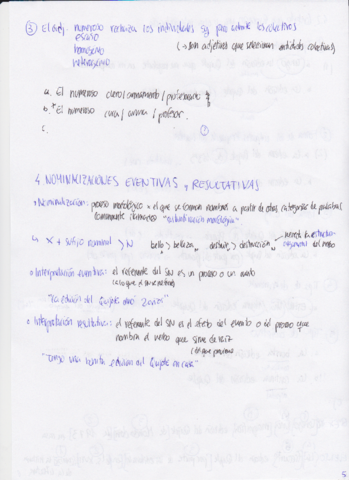 ③ El adj. numeroso rechaza los individuales sg pero admite los colectivos
escaso
homogéneo
heterogéneo
(→ son adjetivos que seleccionan entidades colectivas)
a. El numeroso clero / armamento / profesorado
b. * El numeroso cura / arma / profesor.
c.
4. NOMINALIZACIONES EVENTIVAS Y RESULTATIVAS
Nominalización: proceso morfológico x el que se forman nombres a partir de otras categorías de palabras
"sustantivación morfológica"
X + sufijo nominal > N bello > belleza, destruir > destrucción
del verbo
Interpretación eventiva: el referente del SN es un proceso o un evento
"La edición del Quijote duró 2 años"
Interpretación resultativa: el referente del SN es el efecto del evento o del proceso que
nombra el verbo que sirve de raíz
"Tengo una bonita edición del Quijote en casa"
5